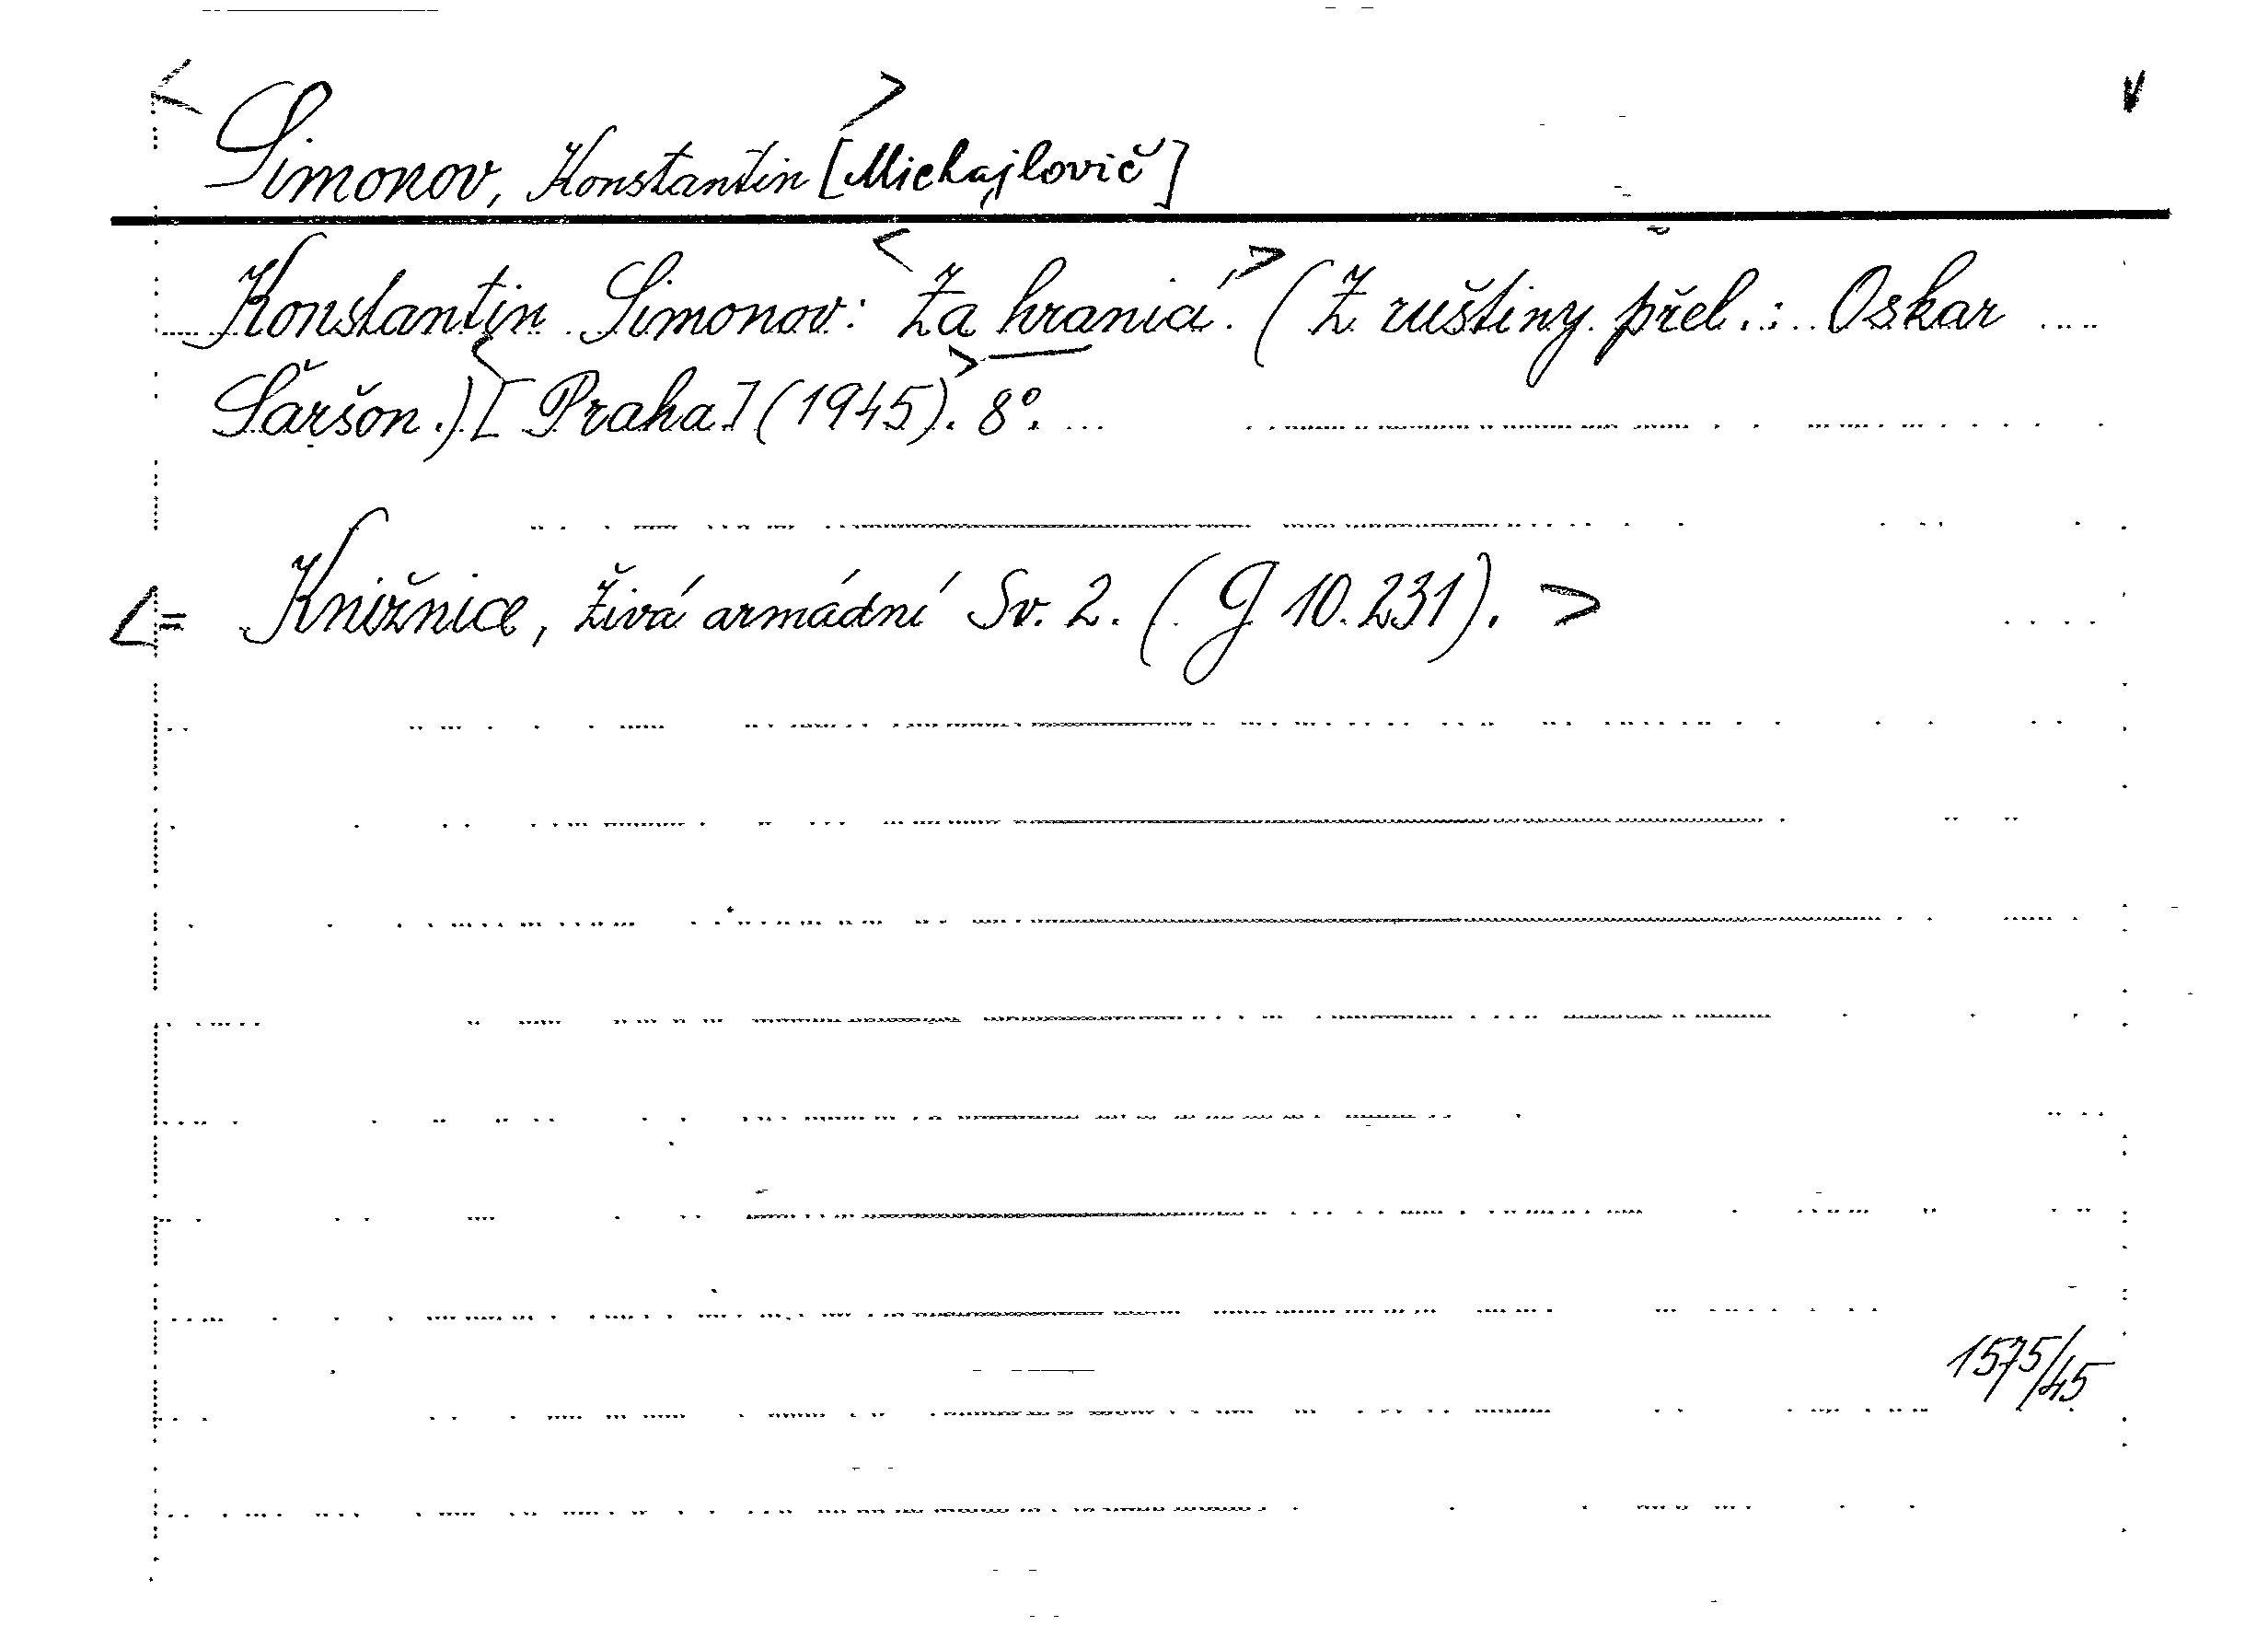 <Simonov, Konstantin> [Michajlovič]
Konstantin Simonov: <Za hranicí.> (Z ruštiny přel.: Oskar
Šaršon.) <[Praha] (1945).> 8°.
<= Knižnice, živá armádní Sv. 2. (G 10.231). >
1575/45